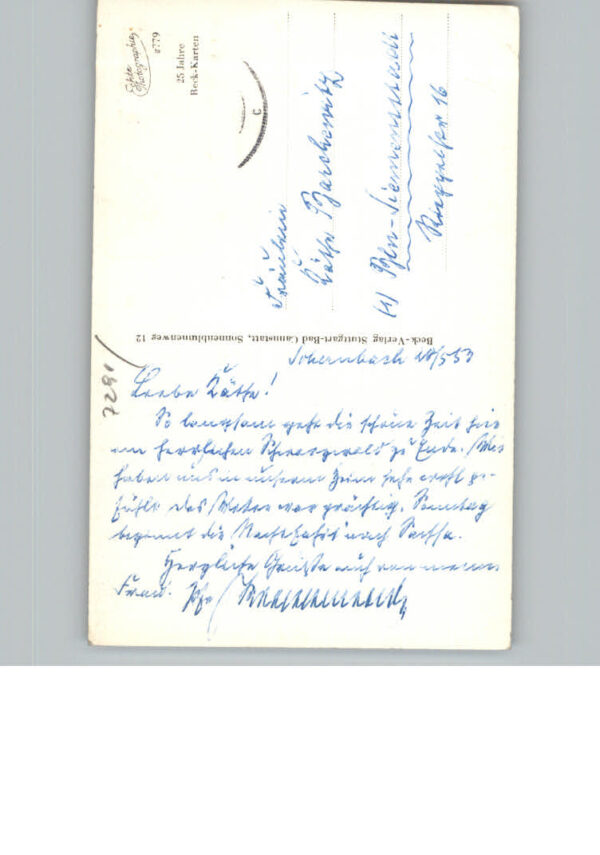 Echte
Photographie
a779
25 Jahre
Beck-Karten
c
Fräulein
Käthe
(1) Bln-Siemensstadt
16
Beck-Verlag Stuttgart-Bad Cannstatt, Sonnenblumenweg 12
7291
28/5 53
Liebe Käthe!
So langsam geht die schöne Zeit hier
im herrlichen Schwarzwald zu Ende. Wir
haben uns in unserm Heim sehr wohl ge-
fühlt das Wetter war prächtig. Sonntag
beginnt die nach
Herzliche Grüße auch von meiner
Frau. Ihr